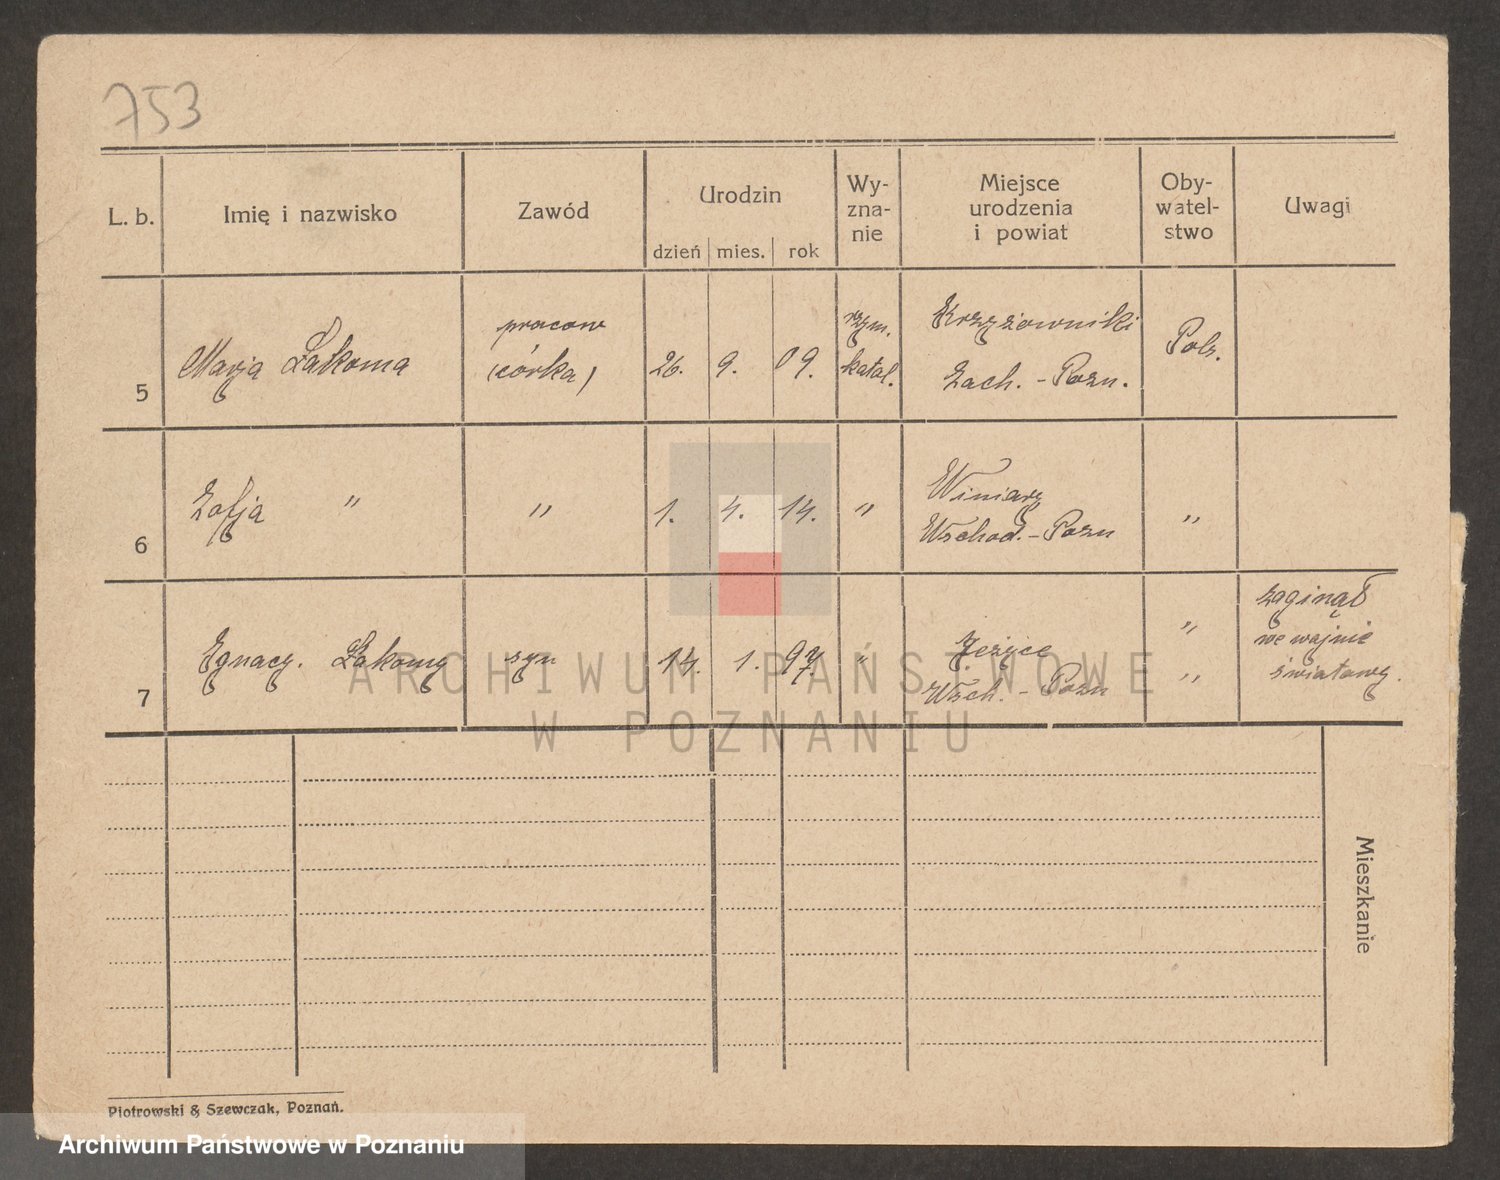 753
L. b.
Imię i nazwisko
Zawód
Urodzin
dzień
mies.
rok
Wy-
zna-
nie
Miejsce
urodzenia
i powiat
Oby-
watel-
stwo
Uwagi
5
Marja Łakoma
pracow
(córka)
26.
9.
09.
rzym.
katol.
Krzyżowniki
Zach. - Pozn.
Pols.
6
Zofja "
"
1.
4.
14.
"
Winiary
Wschod. - Pozn
"
7
Ignacy. Łakomy
syn
14.
1.
97.
"
Jeżyce
Wsch. - Pozn
"
"
zaginął
we wojnie
światowy.
ARCHIWUM PAŃSTWOWE
W POZNANIU
Mieszkanie
Piotrowski & Szewczak, Poznań.
Archiwum Państwowe w Poznaniu